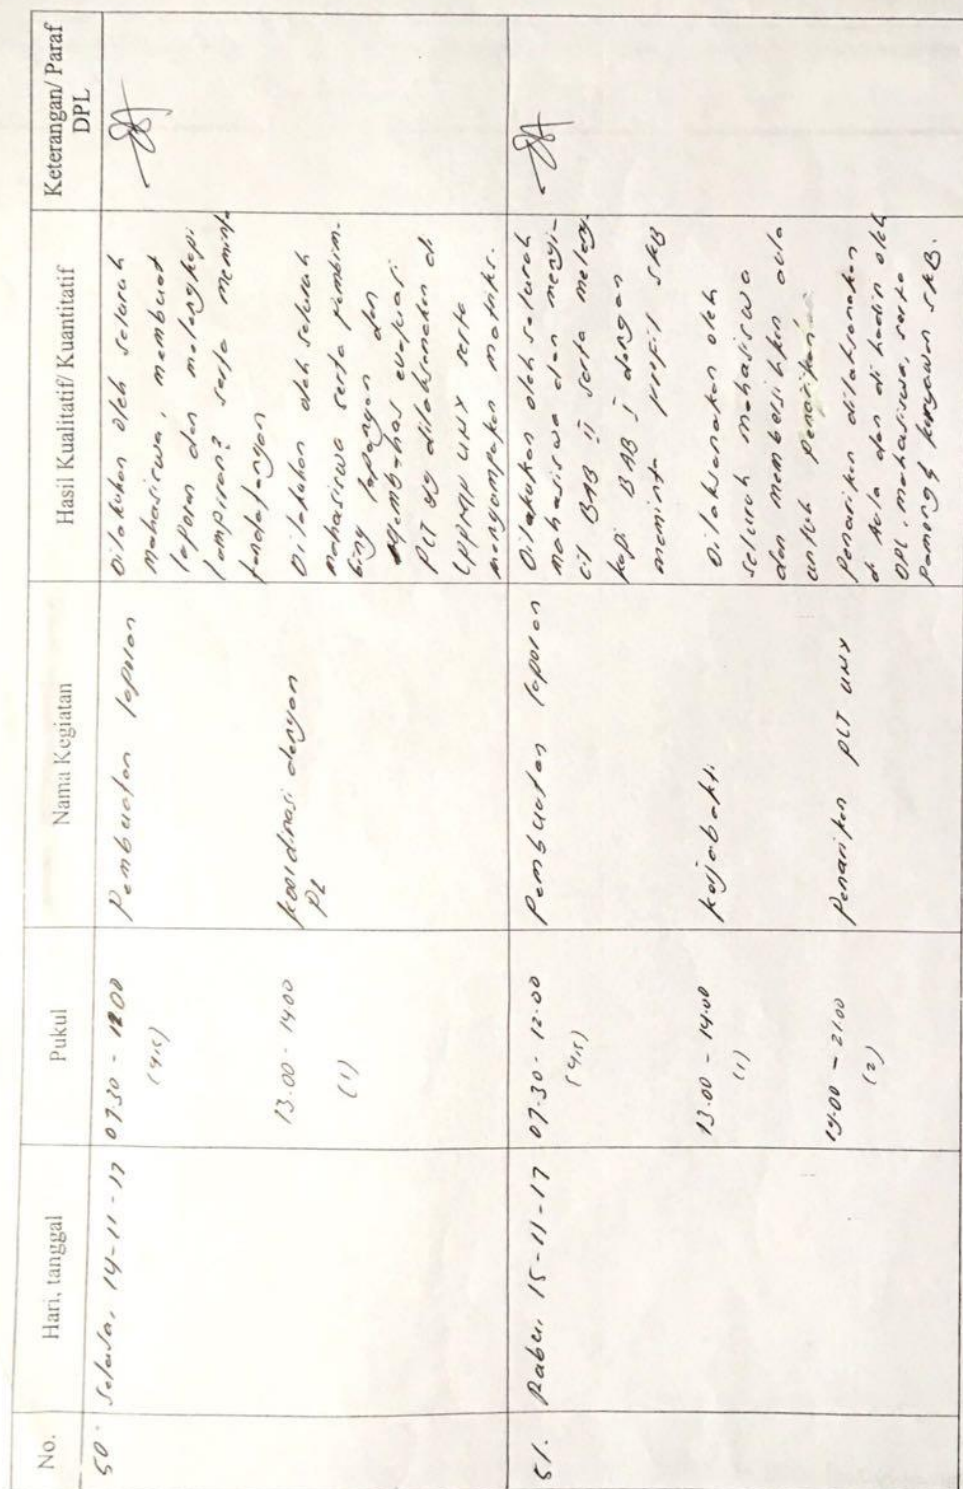 No.
Hari, tanggal
Pukul
Nama Kegiatan
Hasil Kualitatif/ Kuantitatif
Keterangan/ Paraf
DPL
50.
Selasa, 14-11-17
07.30 - 12.00
(4,5)
Pembuatan laporan
Dilakukan oleh seluruh
mahasiswa, membuat
laporan dan melengkapi
lampiran² serta meminta
tandatangan
13.00 - 14.00
(1)
koordinasi dengan
PL
Dilakukan oleh seluruh
mahasiswa serta pembim-
bing lapangan dan
membahas evaluasi
PLT yg dilaksanakan di
LPPMP UNY serta
menyampaikan matriks.
51.
Rabu, 15-11-17
07.30 - 12.00
(4,5)
Pembuatan laporan
Dilakukan oleh seluruh
mahasiswa dan menyi-
cil BAB II serta meleng-
kapi BAB I dengan
meminta profil SKB
13.00 - 14.00
(1)
kerjabakti
Dilaksanakan oleh
seluruh mahasiswa
dan membersihkan aula
untuk penarikan
19.00 - 21.00
(2)
Penarikan PLT UNY
Penarikan dilaksanakan
di Aula dan di hadiri oleh
DPL, mahasiswa, serta
Pamong & karyawan SKB.